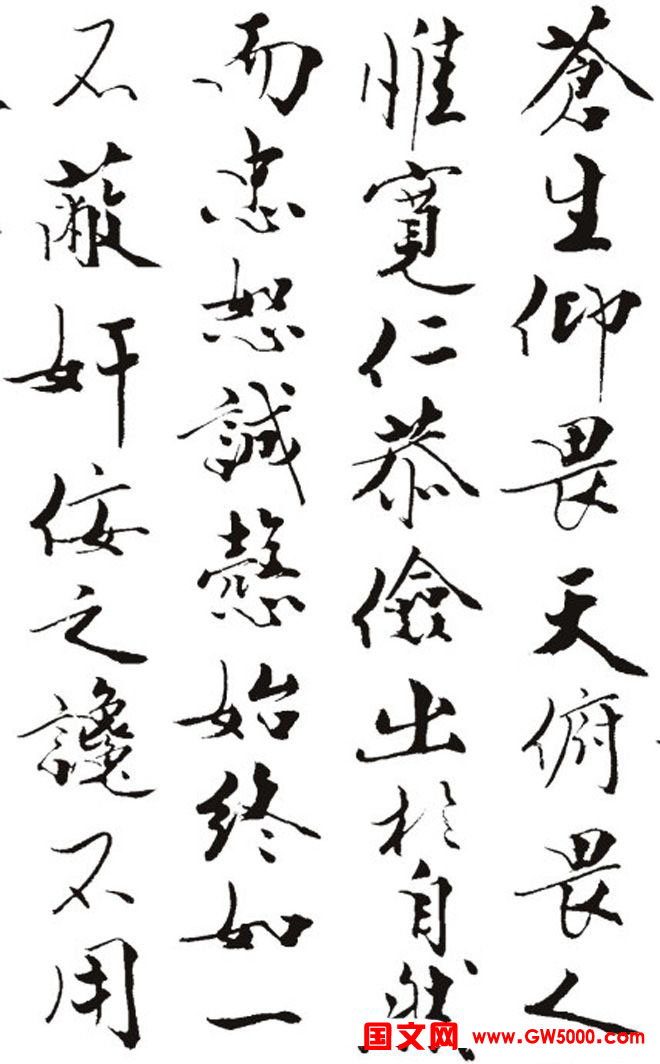 蒼生仰畏天俯畏人
惟寬仁恭儉出於自然
而忠恕誠慤始終如一
不蔽奸佞之讒不用
国文网 www.GW5000.com